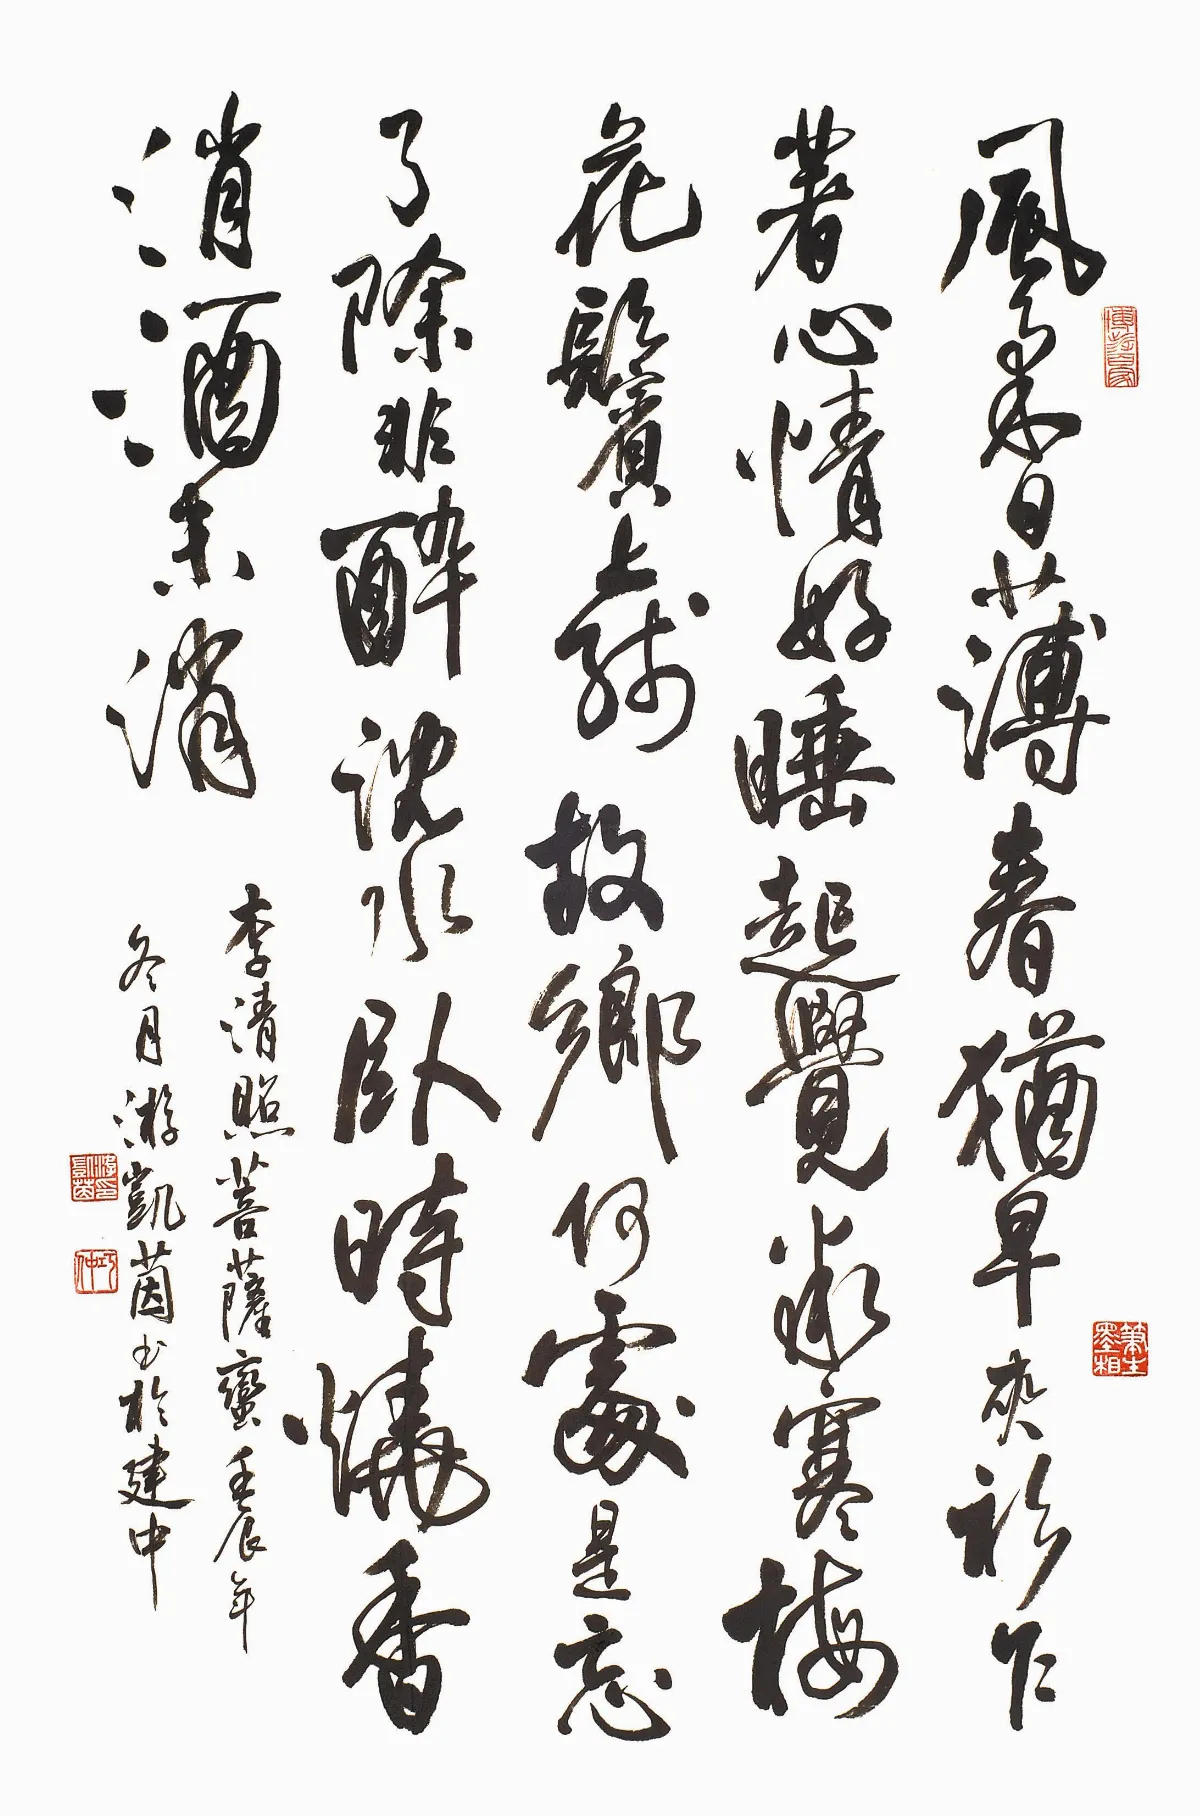 風柔日薄春猶早夾衫乍
著心情好睡起覺微寒梅
花鬢上殘故鄉何處是忘
了除非醉沈水臥時燒香
消酒未消
李清照菩薩蠻壬辰年
冬月游凱茵书於建中